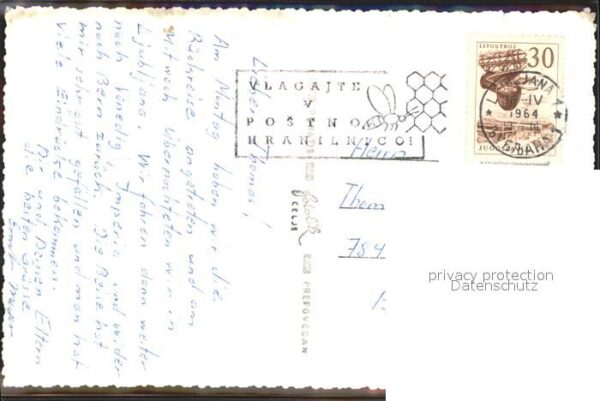 Lieber Thomas!
Am Montag haben wir die
Rückreise angetreten und am
Mittwoch übernachteten wir in
Ljubljana. Wir fahren dann weiter
nach Venedig, Imperia und wider
nach Bern zurück. Die Reise hat
mir sehr gut gefallen und man hat
viele Eindrücke bekommen.
Dir und Deinen Eltern
die besten Grüsse
VLAGAJTE
V
POŠTNO
HRANILNICO!
LITOSTROJ
30
JUGO
JANA 1
IV
1964
Herrn
Thom
784
CELJE
privacy protection
Datenschutz